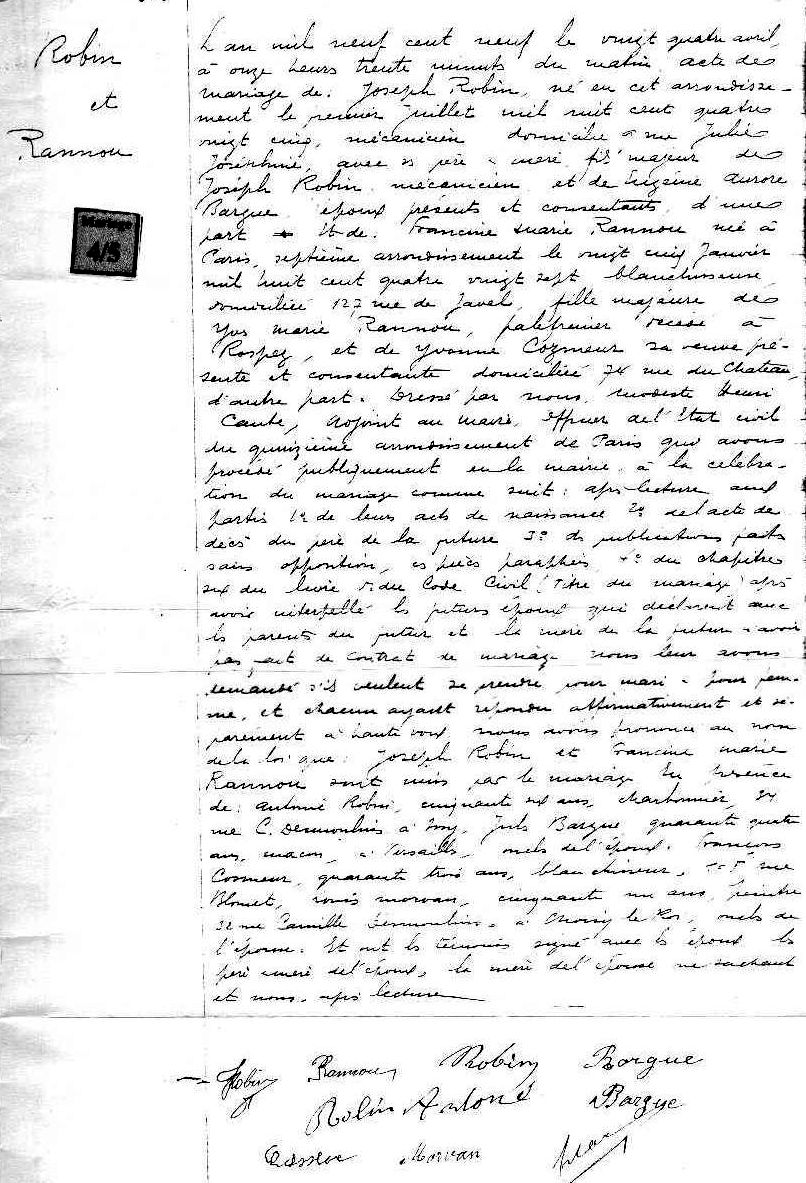 Robin
et
Rannou
Mariage
4/5
L'an mil neuf cent neuf le vingt quatre avril,
à onze heures trente minutes du matin acte de
mariage de: Joseph Robin, né en cet arrondisse-
ment le premier Juillet mil huit cent quatre
vingt cinq, mécanicien domicilié rue Julie
Joséphine, avec ses père & mère, fils majeur de
Joseph Robin, mécanicien et de Eugénie Aurore
Bargue, époux présents et consentants, d'une
part - Et de: Francine Marie Rannou née à
Paris, septième arrondissement le vingt cinq Janvier
mil huit cent quatre vingt sept blanchisseuse,
domiciliée 127 rue de Javel, fille majeure de
Yves Marie Rannou, palefrenier décédé à
Rospez, et de Yvonne Cozmeur sa veuve pré-
sente et consentante domiciliée 74 rue du Chateau,
d'autre part. Dressé par nous, Modeste Henri
adjoint au maire, officier de l'Etat civil
du quinzième arrondissement de Paris qui avons
procédé publiquement en la mairie, à la célébra-
tion du mariage comme suit: après lecture aux
parties 1° de leurs actes de naissance 2° de l'acte de
décès du père de la future 3° des publications faites
sans opposition, ces pièces paraphées, 4° du chapitre
six du livre du Code Civil (Titre du mariage) après
avoir interpellé les futurs époux qui déclarent avec
les parents du futur et la mère de la future n'avoir
pas fait de contrat de mariage nous leur avons
demandé s'ils veulent se prendre pour mari & pour fem-
me, et chacun ayant répondu affirmativement et sé-
parément à haute voix nous avons prononcé au nom
de la loi que: Joseph Robin et Francine Marie
Rannou sont unis par le mariage En présence
de: Antoine Robin, cinquante six ans, charbonnier, 34
rue C. Desmoulins à Issy, Jules Bargue quarante quatre
ans, maçon, à Versailles, oncles de l'époux. François
Cosmeur, quarante trois ans, blanchisseur, rue
Blomet, Louis Morvan, cinquante un ans, peintre
32 rue Camille Desmoulins, à Choisy le Roi, oncles de
l'épouse. Et ont les témoins signé avec les époux les
père & mère de l'époux, la mère de l'épouse ne sachant
et nous, après lecture
Robin Rannou Robin Bargue
Robin Antoine Bargue
Morvan